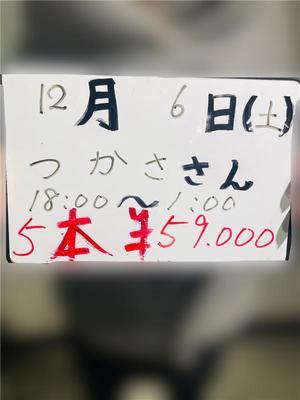 12月 6日(土)
つかささん
18:00〜1:00
5本¥59.000